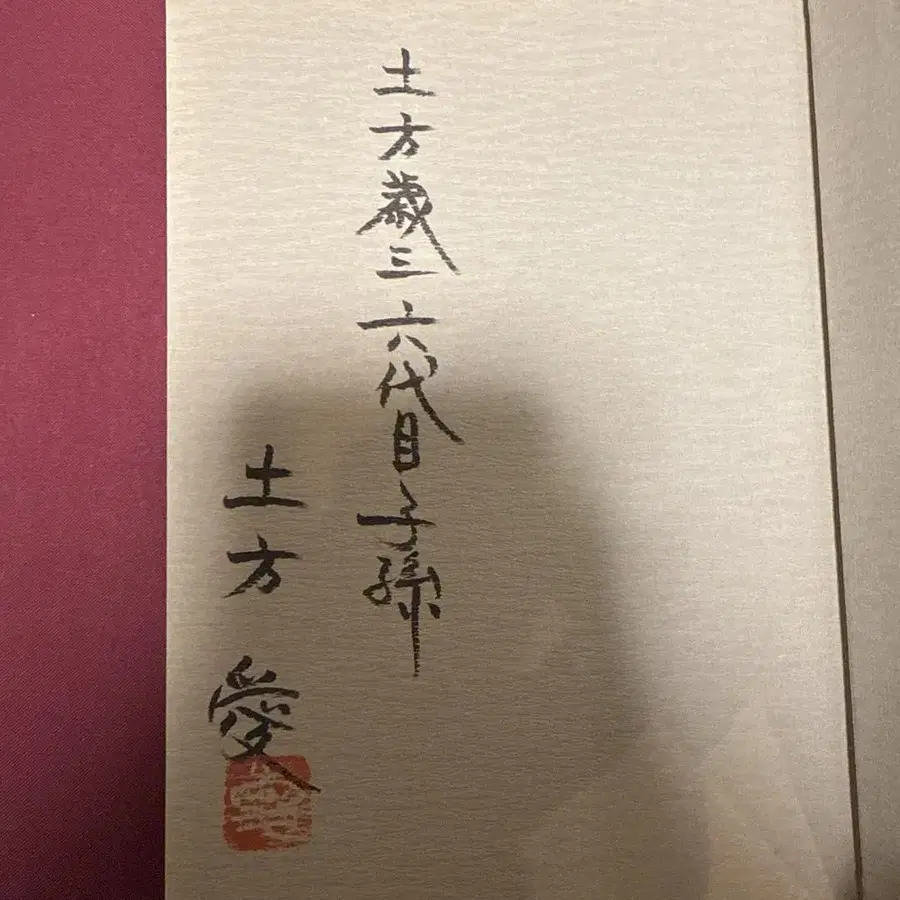 土方歳三六代目子孫
土方 愛